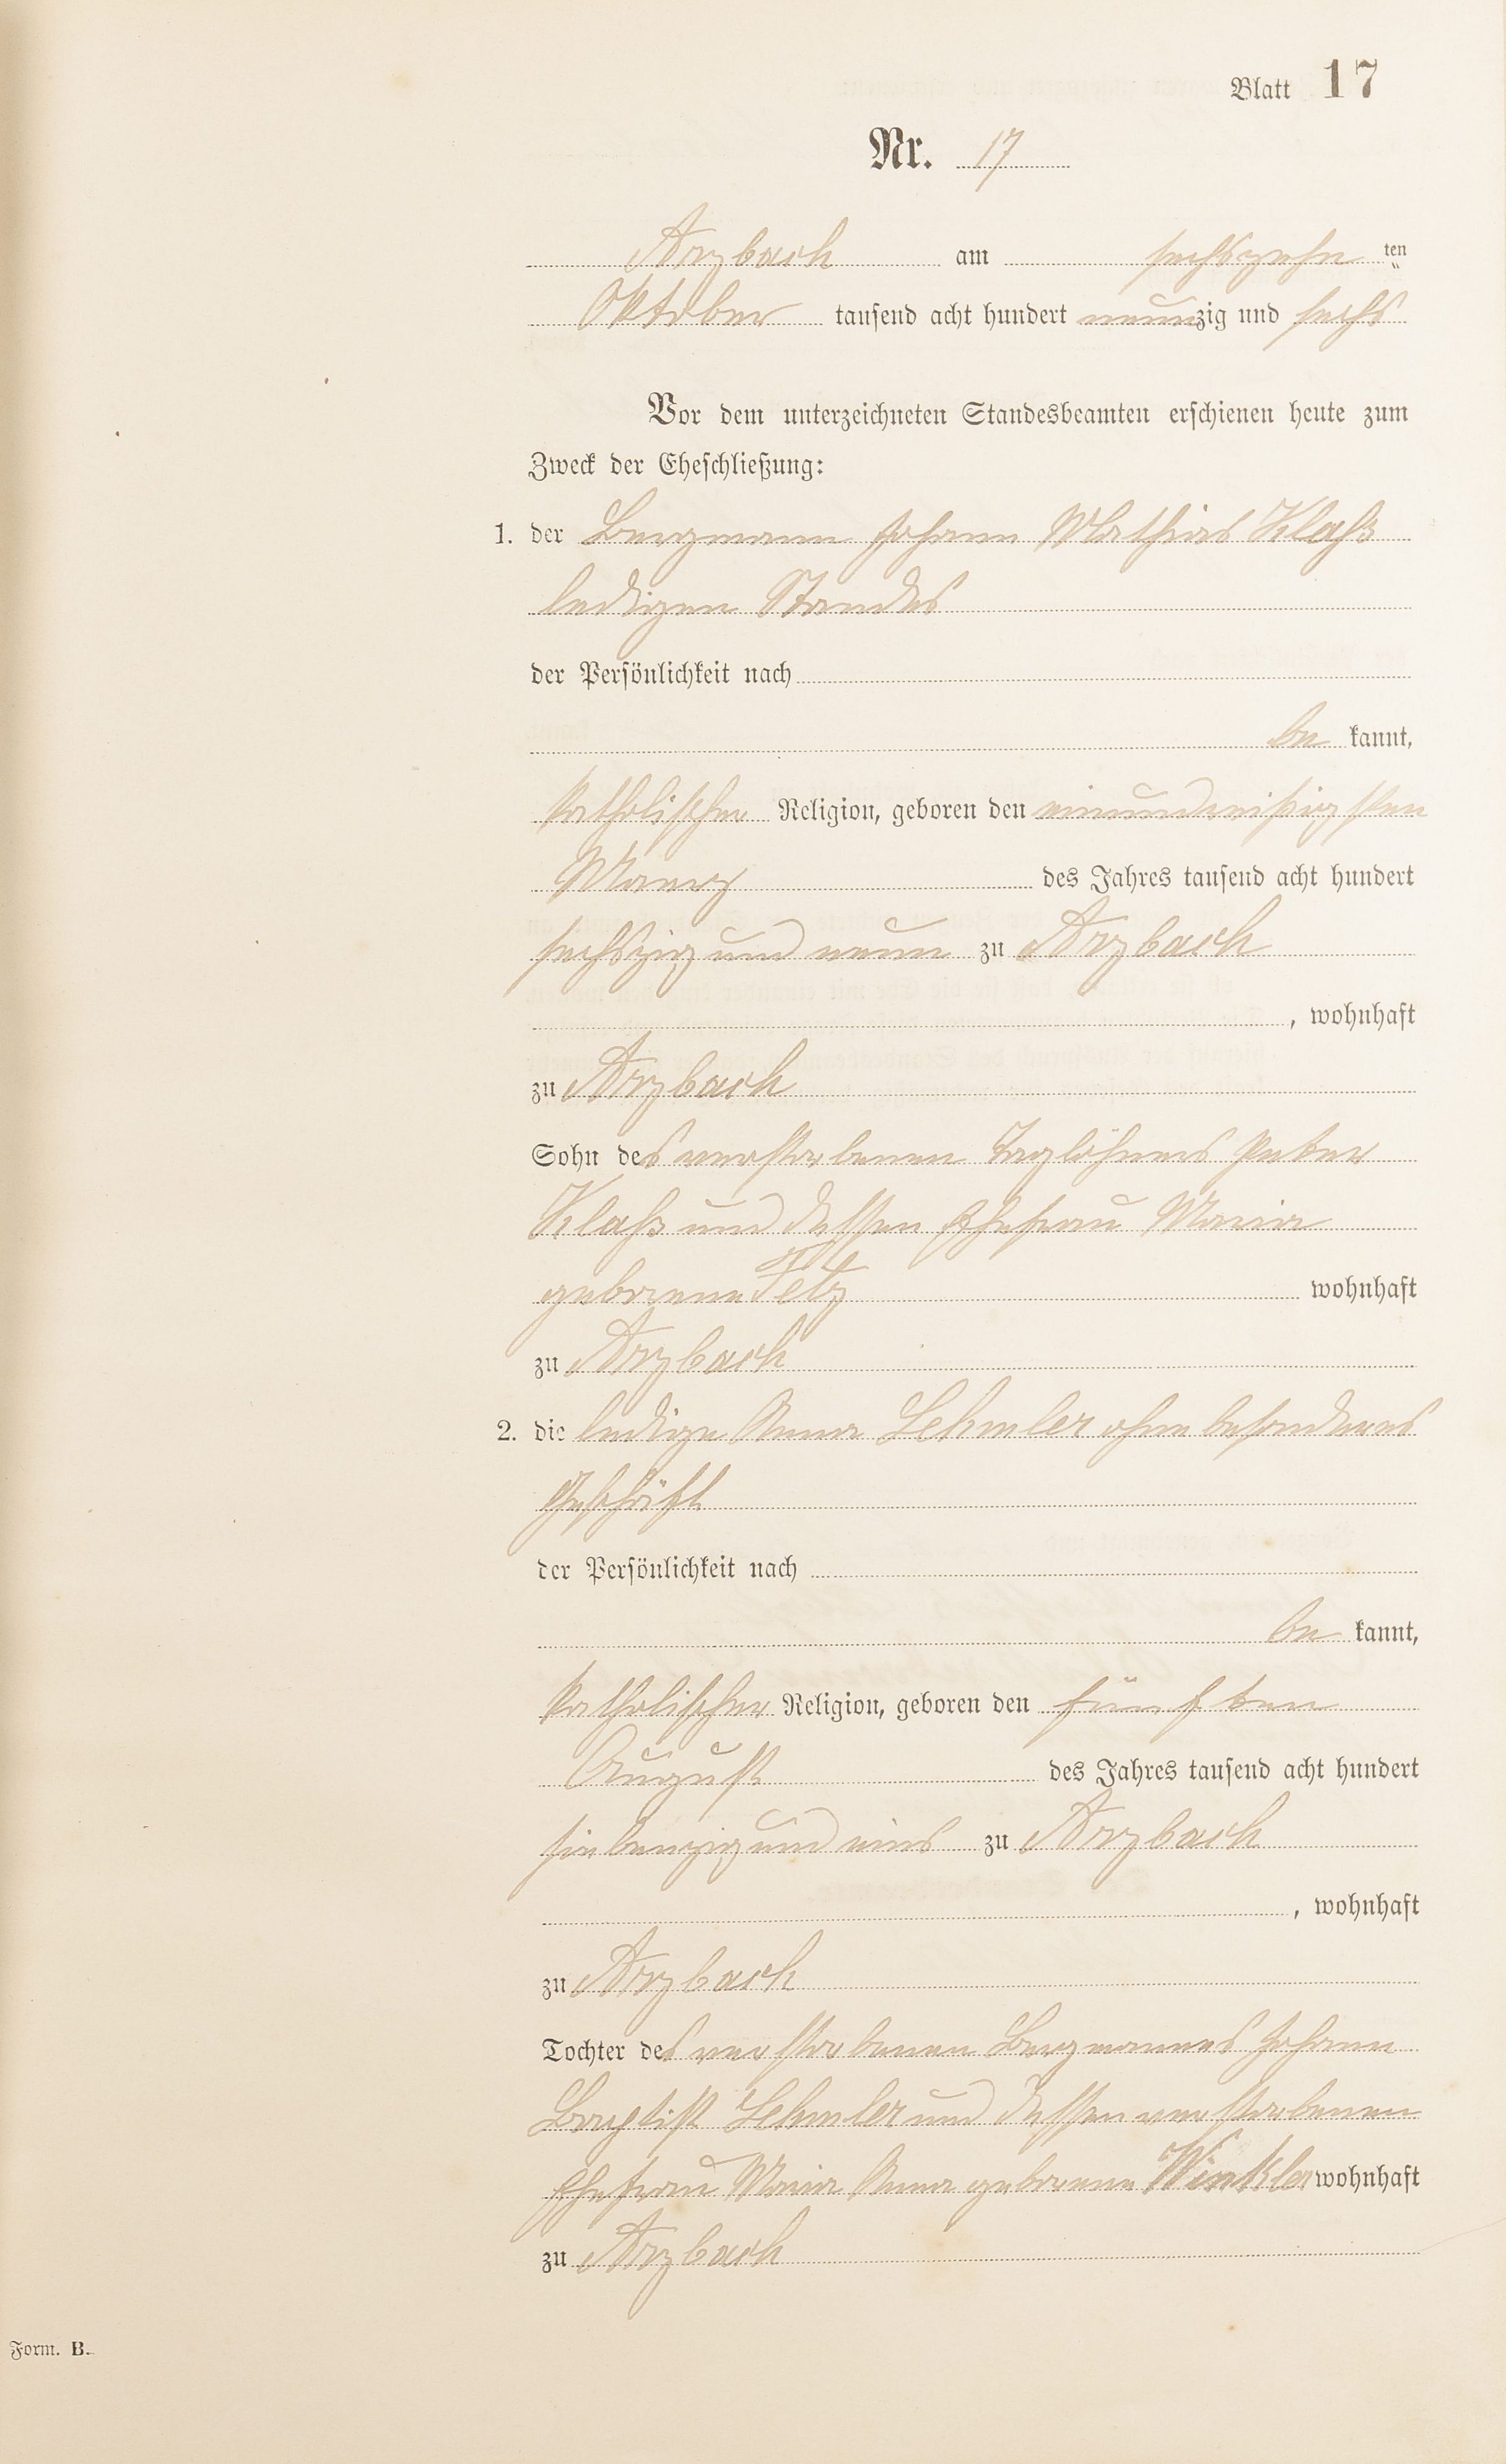 Blatt 17
Nr. 17
Arzbach am sechszehn ten
Oktober tausend acht hundert neunzig und sechs
Vor dem unterzeichneten Standesbeamten erschienen heute zum
Zweck der Eheschließung:
1. der Bergmann Johann Mathias Klaß
ledigen Standes
der Persönlichkeit nach
be kannt,
katholischer Religion, geboren den einunddreißigsten
Maerz des Jahres tausend acht hundert
sechszig und neun zu Arzbach
, wohnhaft
zu Arzbach
Sohn des verstorbenen Taglöhners Peter
Klaß und dessen Ehefrau Maria
geborene Fetz wohnhaft
zu Arzbach
2. die ledige Anna Lehmler ohne besonderes
Geschäft
der Persönlichkeit nach
be kannt,
katholischer Religion, geboren den fünften
August des Jahres tausend acht hundert
siebenzig und eins zu Arzbach
, wohnhaft
zu Arzbach
Tochter des verstorbenen Bergmannes Johann
Baptist Lehmler und dessen verstorbenen
Ehefrau Maria Anna geborene Winkler wohnhaft
zu Arzbach
Form. B.